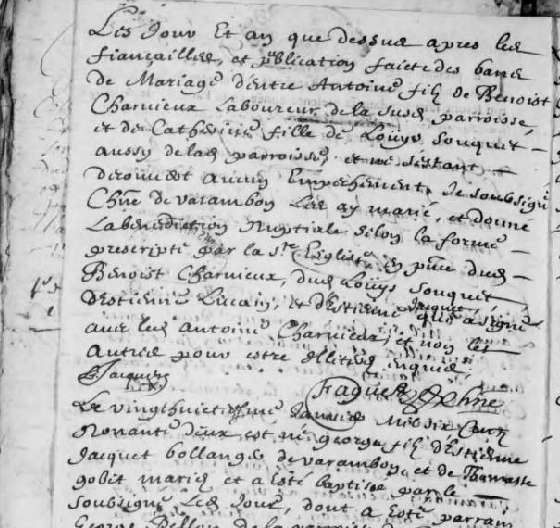 Les Jour Et an que dessus apres les
fiançailles, et publication faicte des bans
de Mariage d'entre Antoine fils de Benoist
Charvieux Laboureur de la susd parroisse,
et de Catherine fille de Louys Souquet
aussy de lad parroisse, et ne s'estant
descouvert aucun Empechement, Je soubsigné
Chne de varambon les ay marié, et donné
La benediction Nuptiale selon la forme
prescripte par la Ste Eglise En pnce dud
Benoist Charvieux, dud Louys Souquet,
d'Estienne et d'Estienne Jacquet qui a signé
avec led Antoine Charvieux, et non les
autres pour estre illitérés enquis.
E Jacquet
Faguet Chne
Le vingthuictiesme Janvier Mil six Cent
Nonante deux est né george fils d'Estienne
Jaquet bollanger de varambon, et de
gobet mariés et a esté baptisé par le
soubsigné Led Jour, dont a esté parrain
George